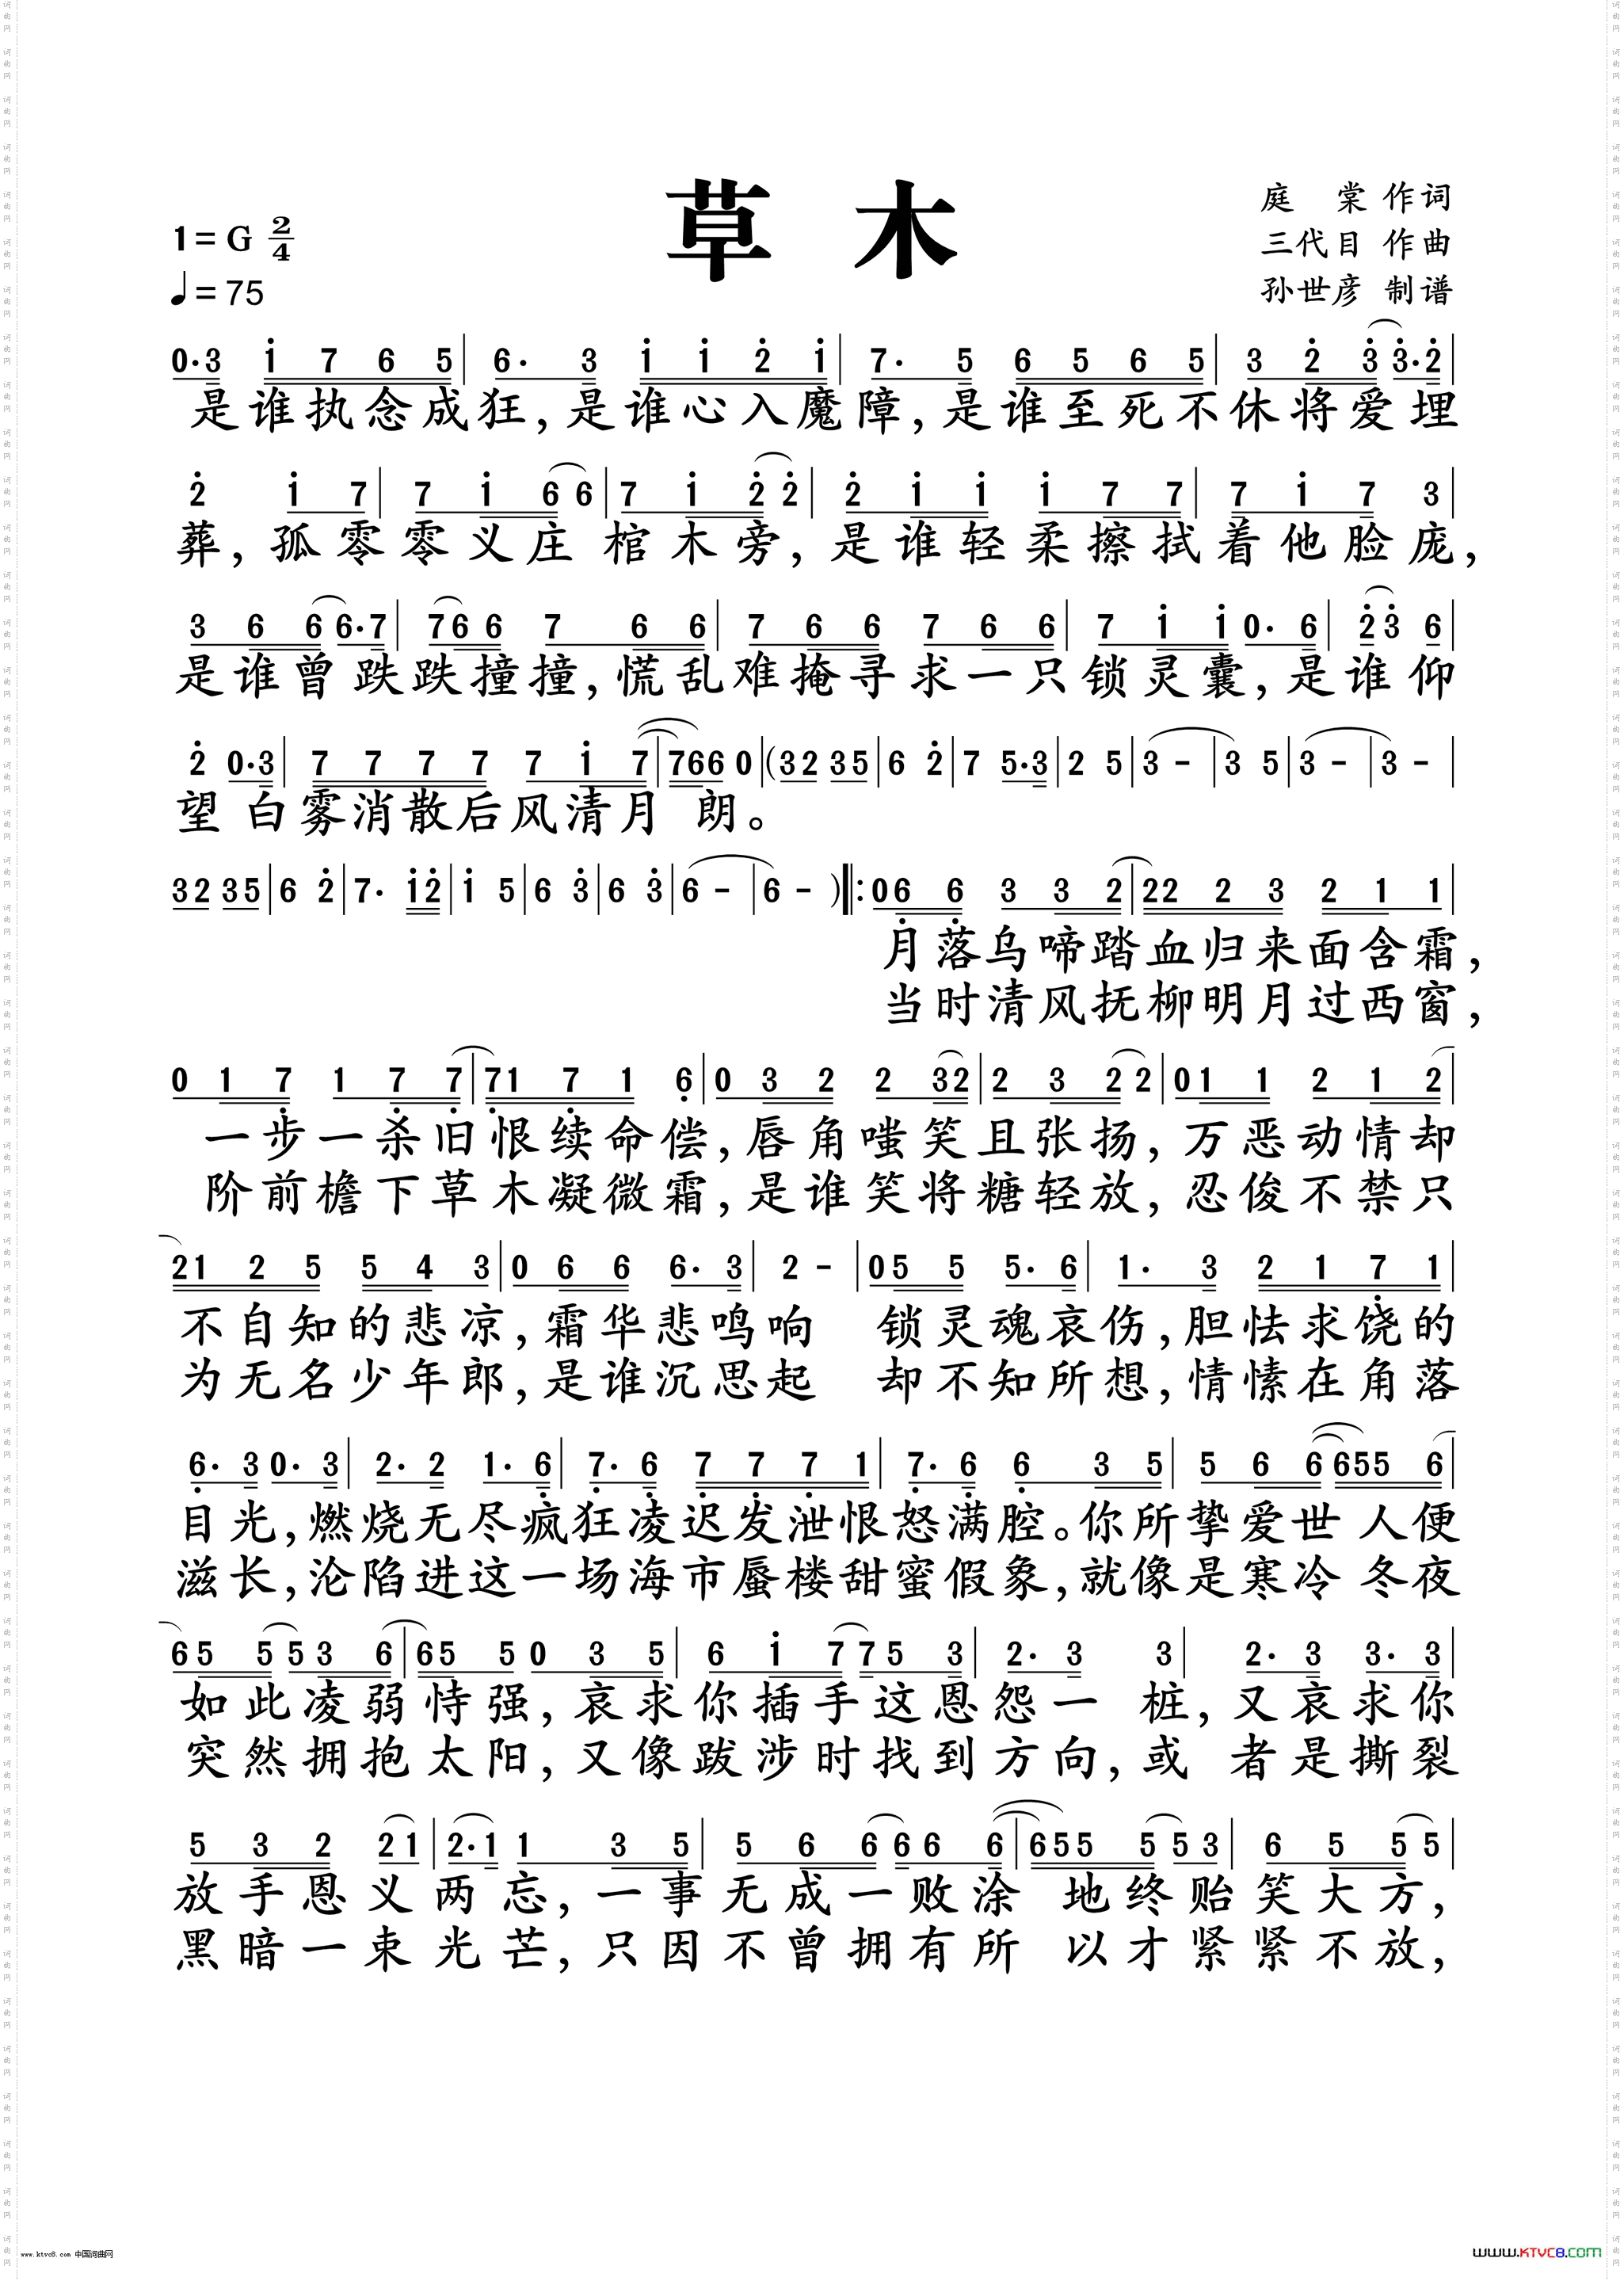 草木
庭 棠 作词
1=G 2/4
三代目 作曲
♩=75
孙世彦 制谱
0·3 i 7 6 5 | 6· 3 i i 2 i | 7· 5 6 5 6 5 | 3 2 3 3·2 |
是谁执念成狂,是谁心入魔障,是谁至死不休将爱埋
2 i 7 | 7 i 6 6 | 7 i 2 2 | 2 i i i 7 7 | 7 i 7 3 |
葬,孤零零义庄 棺木旁,是谁轻柔擦拭着他脸庞,
3 6 6 6·7 | 7 6 6 7 6 6 | 7 6 6 7 6 6 | 7 i i 0· 6 | 2 3 6 |
是谁曾跌跌撞撞,慌乱难掩寻求一只锁灵囊,是谁仰
2 0·3 | 7 7 7 7 7 i 7 | 7 6 6 0 | (3 2 3 5 | 6 2 | 7 5·3 | 2 5 | 3 - | 3 5 | 3 - | 3 - |
望 白雾消散后风清月 朗。
3 2 3 5 | 6 2 | 7· i 2 | i 5 | 6 3 | 6 3 | 6 - | 6 - ) ‖: 0 6 6 3 3 2 | 2 2 2 3 2 1 1 |
月落乌啼踏血归来面含霜,
当时清风抚柳明月过西窗,
0 1 7 1 7 7 | 7 1 7 1 6 | 0 3 2 2 3 2 | 2 3 2 2 | 0 1 1 2 1 2 |
一步一杀旧恨续命偿,唇角嗤笑且张扬,万恶动情却
阶前檐下草木凝微霜,是谁笑将糖轻放,忍俊不禁只
2 1 2 5 5 4 3 | 0 6 6 6· 3 | 2 - | 0 5 5 5· 6 | 1· 3 2 1 7 1 |
不自知的悲凉,霜华悲鸣响 锁灵魂哀伤,胆怯求饶的
为无名少年郎,是谁沉思起 却不知所想,情愫在角落
6· 3 0· 3 | 2· 2 1· 6 | 7· 6 7 7 7 1 | 7· 6 6 3 5 | 5 6 6 6 5 5 6 |
目光,燃烧无尽疯狂凌迟发泄恨怒满腔。你所挚爱世 人便
滋长,沦陷进这一场海市蜃楼甜蜜假象,就像是寒冷 冬夜
6 5 5 5 3 6 | 6 5 5 0 3 5 | 6 i 7 7 5 3 | 2· 3 3 | 2· 3 3· 3 |
如此凌弱恃强,哀求你插手这恩怨一 桩,又哀求你
突然拥抱太阳,又像跋涉时找到方向,或 者是撕裂
5 3 2 2 1 | 2·1 1 3 5 | 5 6 6 6 6 6 | 6 5 5 5 5 3 | 6 5 5 5 |
放手恩义两忘,一事无成一败涂 地终贻笑大方,
黑暗一束光芒,只因不曾拥有所 以才紧紧不放,
www.ktvc8.com 中国词曲网
WWW.KTVC8.COM